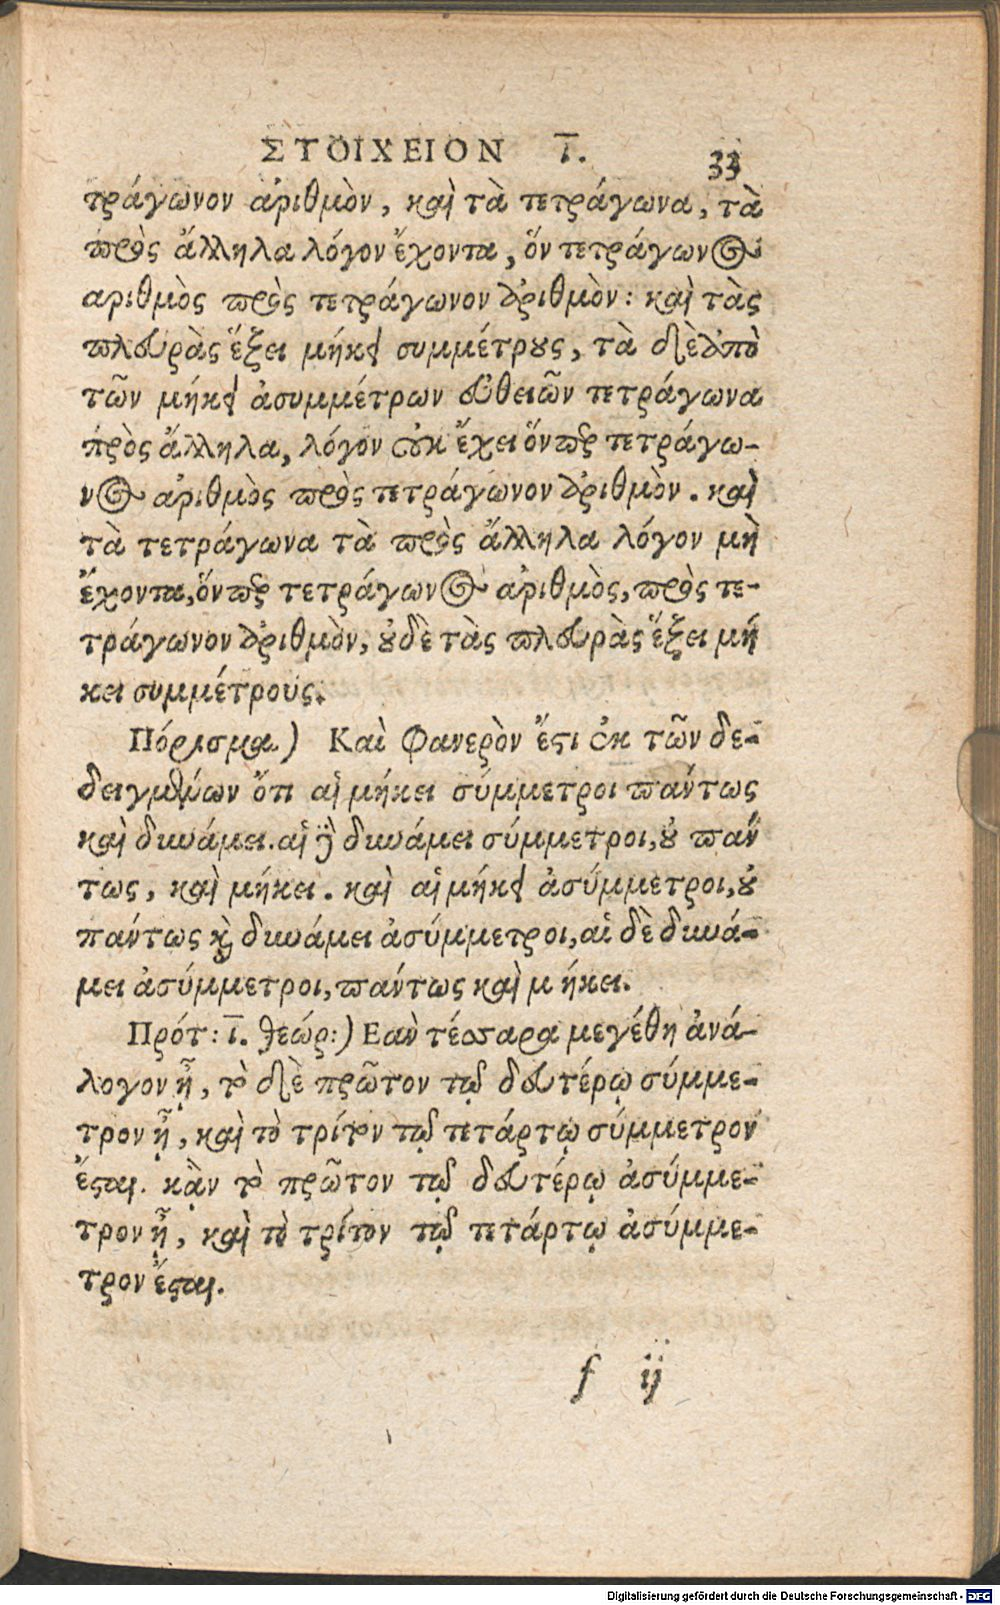 ΣΤΟΙΧΕΙΟΝ Ι̅. 33
τράγωνον ἀριθμὸν, καὶ τὰ τετράγωνα, τὰ
πρὸς ἄλληλα λόγον ἔχοντα, ὅν τετράγωνος
αριθμὸς πρὸς τετράγωνον ἀριθμὸν: καὶ τὰς
πλευρὰς ἕξει μήκει συμμέτρους, τὰ δὲ ἀπὸ
τῶν μήκει ἀσυμμέτρων εὐθειῶν τετράγωνα
πρὸς ἄλληλα, λόγον οὐκ ἔχει ὅνπερ τετράγω-
νος ἀριθμὸς πρὸς τετράγωνον ἀριθμὸν. καὶ
τὰ τετράγωνα τὰ πρὸς ἄλληλα λόγον μὴ
ἔχοντα, ὅνπερ τετράγωνος ἀριθμὸς, πρὸς τε-
τράγωνον ἀριθμὸν, οὐδὲ τὰς πλευρὰς ἕξει μή
κει συμμέτρους.
Πόρισμα) Καὶ φανερὸν ἔστι ἐκ τῶν δε-
δειγμένων ὅτι αἱ μήκει σύμμετροι πάντως
καὶ δυνάμει. αἱ γὰρ δυνάμει σύμμετροι, οὐ πάν
τως, καὶ μήκει. καὶ αἱ μήκει ἀσύμμετροι, οὐ
πάντως καὶ δυνάμει ἀσύμμετροι, αἱ δὲ δυνά-
μει ἀσύμμετροι, πάντως καὶ μήκει.
Πρότ: ι̅. θεώρ:) Εαν τέσσαρα μεγέθη ἀνά-
λογον ᾖ, τὸ δὲ πρῶτον τῷ δευτέρῳ σύμμε-
τρον ᾖ, καὶ τὸ τρίτον τῷ τετάρτῳ σύμμετρον
ἔσται. κἂν τὸ πρῶτον τῷ δευτέρῳ ἀσύμμε-
τρον ᾖ, καὶ τὸ τρίτον τῷ τετάρτῳ ἀσύμμε-
τρον ἔσται.
f ij
Digitalisierung gefördert durch die Deutsche Forschungsgemeinschaft - DFG